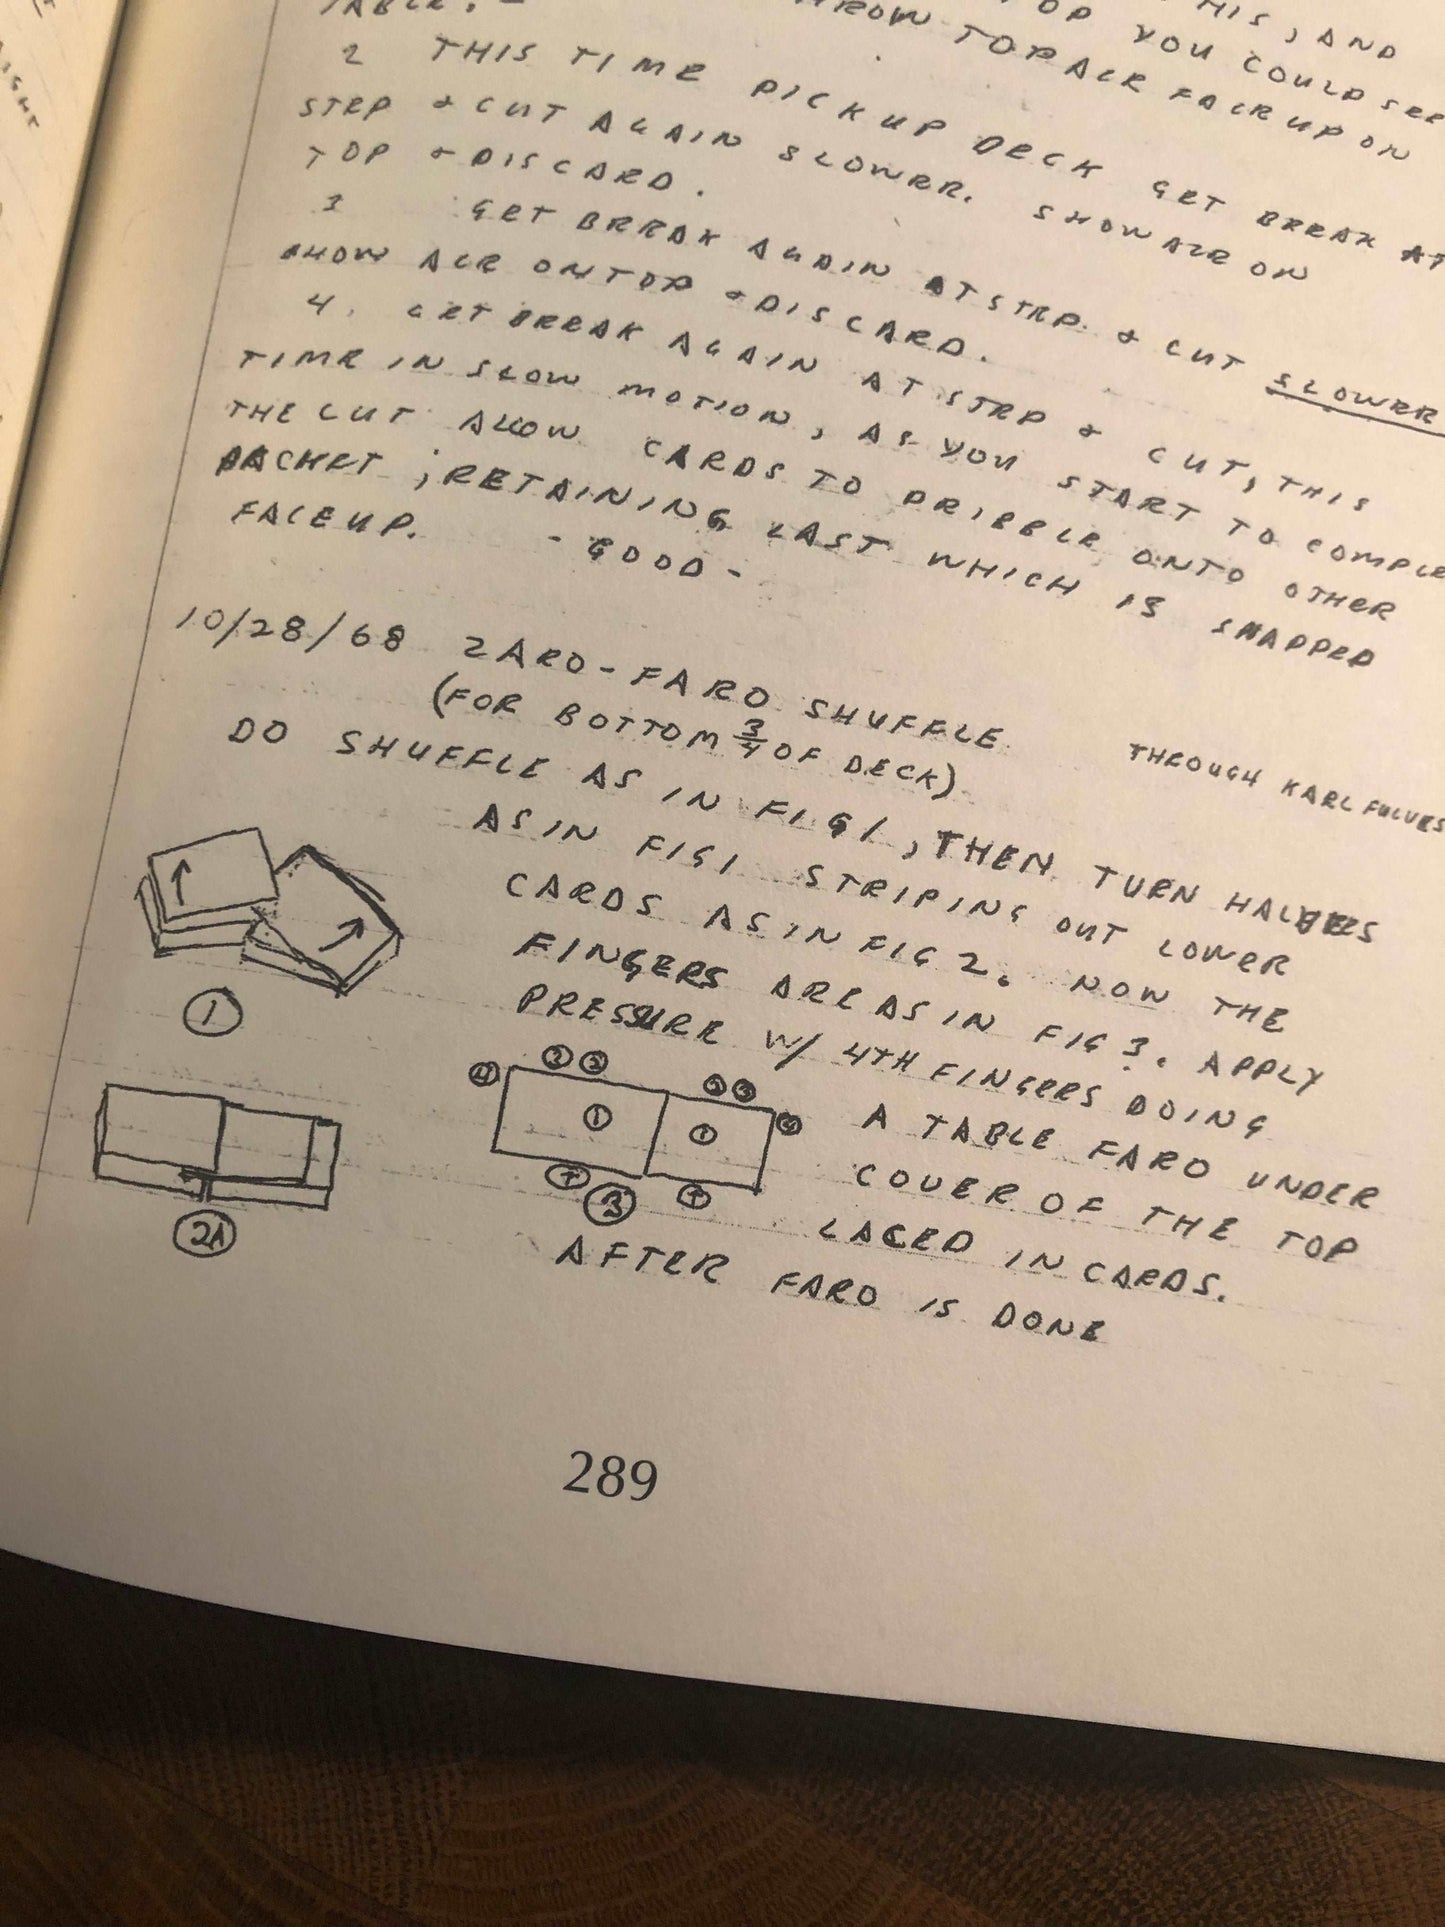 TABLE. -
THROW TOP ACE FACE UP ON
OP YOU COULD SEE
HIS, AND
2 THIS TIME PICKUP DECK GET BREAK AT
STEP & CUT AGAIN SLOWER. SHOW ACE ON
TOP & DISCARD.
3 GET BREAK AGAIN AT STEP. & CUT SLOWER
SHOW ACE ON TOP & DISCARD.
4. GET BREAK AGAIN AT STEP & CUT, THIS
TIME IN SLOW MOTION, AS YOU START TO COMPLE
THE CUT ALLOW CARDS TO DRIBBLE ONTO OTHER
PACKET; RETAINING LAST WHICH IS SNAPPED
FACE UP. - GOOD -
10/28/68 ZARO-FARO SHUFFLE THROUGH KARL FULVES
(FOR BOTTOM 3/4 OF DECK)
DO SHUFFLE AS IN FIG 1, THEN TURN HALVES
AS IN FIG 1 STRIPING OUT LOWER
CARDS AS IN FIG 2. NOW THE
FINGERS ARE AS IN FIG 3. APPLY
PRESSURE W/ 4TH FINGERS DOING
A TABLE FARO UNDER
COVER OF THE TOP
LACED IN CARDS.
AFTER FARO IS DONE
1
2A
4 3 2 2 3 4
1 1
T T
3
289
IGHT